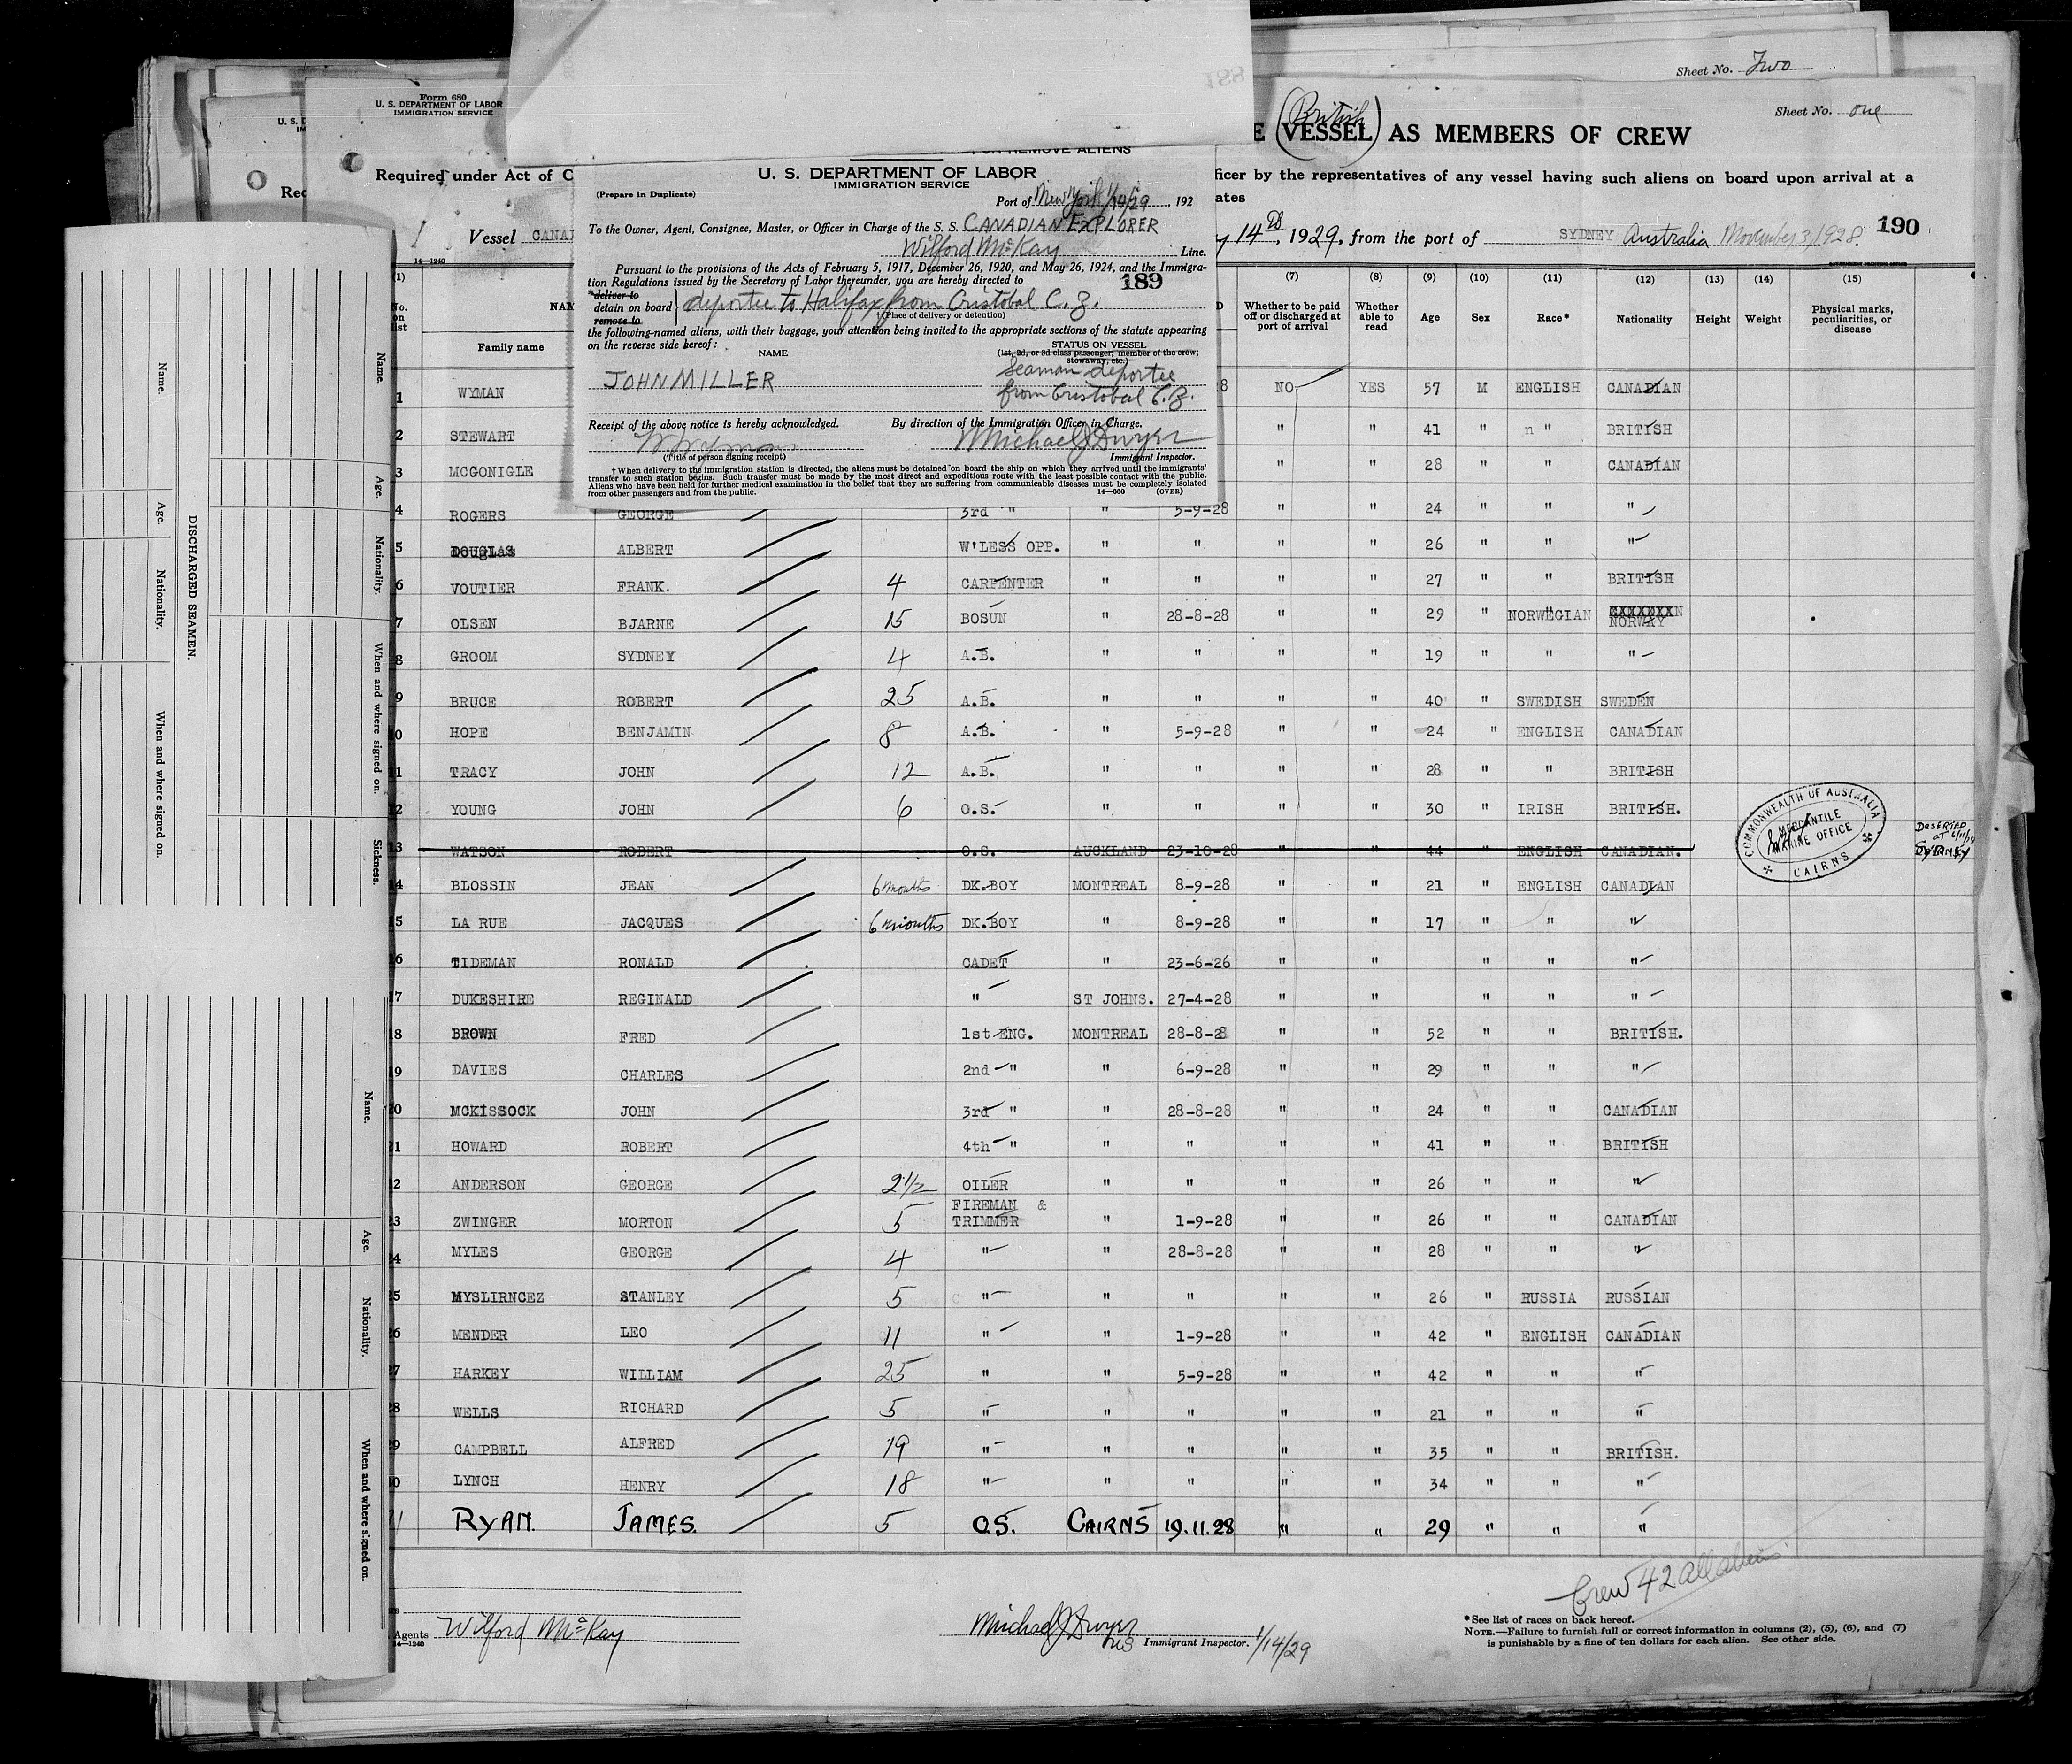 Sheet No. Two
Form 680
U. S. DEPARTMENT OF LABOR
IMMIGRATION SERVICE
Sheet No. one
(British)
VESSEL) AS MEMBERS OF CREW
Required under Act of C
ficer by the representatives of any vessel having such aliens on board upon arrival at a
ates
Vessel CANA
14th, 1929, from the port of SYDNEY Australia November 3, 1928.
190
14—1240
U. S. DEPARTMENT OF LABOR
IMMIGRATION SERVICE
(Prepare in Duplicate)
Port of New York 1/14/29, 192
To the Owner, Agent, Consignee, Master, or Officer in Charge of the S. S. CANADIAN EXPLORER
Wilford McKay Line.
Pursuant to the provisions of the Acts of February 5, 1917, December 26, 1920, and May 26, 1924, and the Immigra-
tion Regulations issued by the Secretary of Labor thereunder, you are hereby directed to
189
*deliver to
detain on board
remove to
deportee to Halifax from Cristobal C. Z.
(Place of delivery or detention)
the following-named aliens, with their baggage, your attention being invited to the appropriate sections of the statute appearing
on the reverse side hereof:
NAME
STATUS ON VESSEL
(1st, 2d, or 3d class passenger; member of the crew;
stowaway, etc.)
JOHN MILLER
Seaman deportee
from Cristobal C.Z.
Receipt of the above notice is hereby acknowledged.
By direction of the Immigration Officer in Charge.
Michael J Dwyer
(Title of person signing receipt)
Immigrant Inspector.
†When delivery to the immigration station is directed, the aliens must be detained on board the ship on which they arrived until the immigrants'
transfer to such station begins. Such transfer must be made by the most direct and expeditious route with the least possible contact with the public.
Aliens who have been held for further medical examination in the belief that they are suffering from communicable diseases must be completely isolated
from other passengers and from the public.
14—680 (OVER)
(1) (7) (8) (9) (10) (11) (12) (13) (14) (15)
No. on list
Family name
Whether to be paid off or discharged at port of arrival
Whether able to read
Age
Sex
Race*
Nationality
Height
Weight
Physical marks, peculiarities, or disease
1 WYMAN 8 NO YES 57 M ENGLISH CANADIAN
2 STEWART " " 41 " " BRITISH
3 MCGONIGLE " " 28 " " CANADIAN
4 ROGERS GEORGE 3rd " " 5-9-28 " " 24 " " "
5 DOUGLAS ALBERT W'LESS OPP. " " " " 26 " " "
6 VOUTIER FRANK. 4 CARPENTER " " " " 27 " " BRITISH
7 OLSEN BJARNE 15 BOSUN " 28-8-28 " " 29 " NORWEGIAN NORWAY
8 GROOM SYDNEY 4 A.B. " " " " 19 " " "
9 BRUCE ROBERT 25 A.B. " " " " 40 " SWEDISH SWEDEN
10 HOPE BENJAMIN 8 A.B. " 5-9-28 " " 24 " ENGLISH CANADIAN
11 TRACY JOHN 12 A.B. " " " " 28 " " BRITISH
12 YOUNG JOHN 6 O.S. " " " " 30 " IRISH BRITISH.
13 WATSON ROBERT O.S. AUCKLAND 23-10-28 " " 44 " ENGLISH CANADIAN.
COMMONWEALTH OF AUSTRALIA
MERCANTILE
MARINE OFFICE
CAIRNS
DESERTED
AT 6/11/28
SYDNEY
14 BLOSSIN JEAN 6 months DK.BOY MONTREAL 8-9-28 " " 21 " ENGLISH CANADIAN
15 LA RUE JACQUES 6 months DK.BOY " 8-9-28 " " 17 " " "
16 TIDEMAN RONALD CADET " 23-6-26 " " " " "
17 DUKESHIRE REGINALD " ST JOHNS. 27-4-28 " " " " "
18 BROWN FRED 1st ENG. MONTREAL 28-8-28 " " 52 " " BRITISH.
19 DAVIES CHARLES 2nd " " 6-9-28 " " 29 " " "
20 MCKISSOCK JOHN 3rd " " 28-8-28 " " 24 " " CANADIAN
21 HOWARD ROBERT 4th " " " " " 41 " " BRITISH
22 ANDERSON GEORGE 2 1/2 OILER " " " " 26 " " "
23 ZWINGER MORTON 5 FIREMAN & TRIMMER " 1-9-28 " " 26 " " CANADIAN
24 MYLES GEORGE 4 " " 28-8-28 " " 28 " " "
25 MYSLIRNCEZ STANLEY 5 " " " " " 26 " RUSSIA RUSSIAN
26 MENDER LEO 11 " " 1-9-28 " " 42 " ENGLISH CANADIAN
27 HARKEY WILLIAM 25 " " 5-9-28 " " 42 " " "
28 WELLS RICHARD 5 " " " " " 21 " " "
29 CAMPBELL ALFRED 19 " " " " " 35 " " BRITISH.
30 LYNCH HENRY 18 " " " " " 34 " " "
RYAN. JAMES. 5 O.S. CAIRNS 19.11.28 " " 29 " " "
Crew 42 all aliens
Agents Wilford McKay
14—1240
Michael J Dwyer
Immigrant Inspector. 1/14/29
*See list of races on back hereof.
NOTE.—Failure to furnish full or correct information in columns (2), (5), (6), and (7)
is punishable by a fine of ten dollars for each alien. See other side.
DISCHARGED SEAMEN.
Name.
Age.
Nationality.
When and where signed on.
Name.
Age.
Nationality.
When and where signed on.
Sickness.
Name.
Age.
Nationality.
When and where signed on.